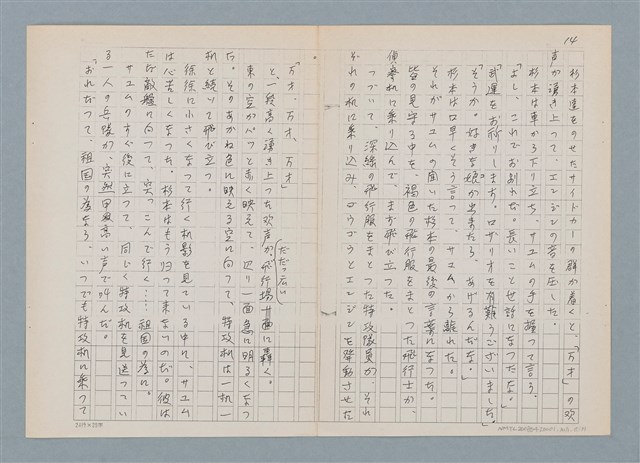 14
杉本達をのせたサイドカーの群が着くと、「万才」の歓
声が湧き上って、エンジンの音を圧した。
杉本は車から下り立ち、サユムの手を握って言う。
「よし、これでお別れだ。長いこと世話になったな。」
「武運をお祈りします。ロザリオを有難うございました。」
「そうか。好きな娘が出来たら、あげるんだな。」
杉本は口早くそう言って、サユムから離れた。
それがサユムの聞いた杉本の最後の言葉になった。
皆の見守る中を、褐色の飛行服をまとった飛行士が、
偵察机に乗り込んで、まず飛び立った。
つづいて、深緑の飛行服をまとった特攻隊員が、それ
ぞれの机に乗り込み、ゴウゴウとエンジンを発動させた
「万才、万才、万才」
と、一段高く湧き上った歓声が、だだっ広い飛行場一面に轟く。
東の空がパッと赤く映えて、辺り一面急に明るくなっ
た。そのあかね色に映える空に向って、特攻机は一机一
机と続いて飛び立つ。
徐徐に小さくなって行く机影を見ている中に、サユム
は心苦しくなった。杉本はもう帰って来ないのだ。彼は
ただ敵艦に向って、突っこんで行く……祖国の為に。
サユムのすぐ後に立って、同じく特攻机を見送ってい
る一人の兵隊が、突然甲高い声で叫んだ。
「おれだって、祖国の為なら、いつでも特攻机に乗って
20字×25行